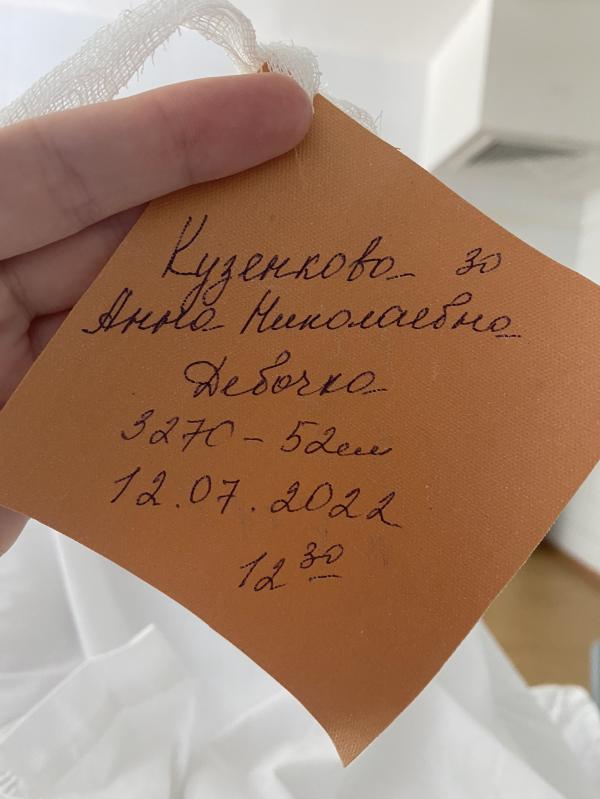 Кузенкова 30
Анна Николаевна
Девочка
3270 – 52см
12.07.2022
12 30